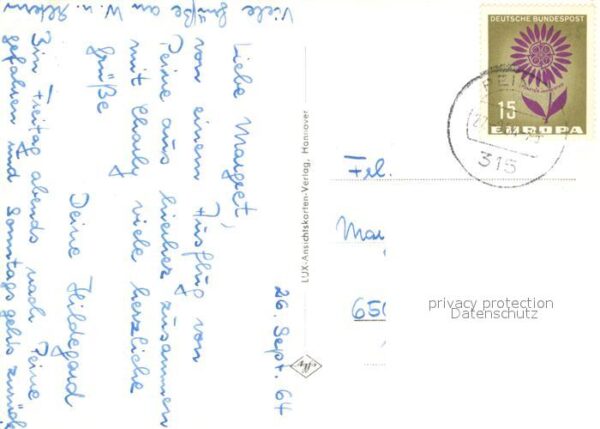 26. Sept. 64
Liebe Margret,
von einem Ausflug von
Peine aus hierher zusammen
mit Charly viele herzliche
Grüße
Deine Hildegard
Bin Freitag abends nach Peine
gefahren und Sonntags gehts zurück
Viele Grüße an W. u. Eltern
LUX-Ansichtskarten-Verlag, Hannover
DEUTSCHE BUNDESPOST
15
EUROPA
PEIN
315
Frl.
Mar
650
privacy protection
Datenschutz